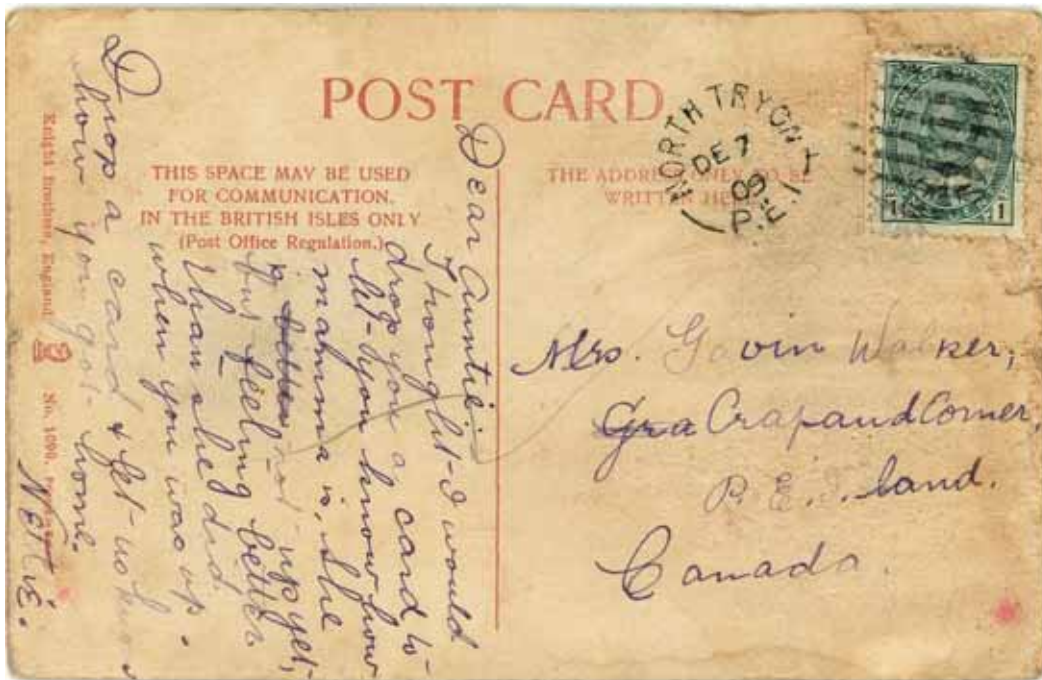 POST CARD
THIS SPACE MAY BE USED
FOR COMMUNICATION.
IN THE BRITISH ISLES ONLY
(Post Office Regulation.)
THE ADDRESS ONLY TO BE
WRITTEN HERE
NORTH TRYON
DE 7
09
P.E.I
1 1
Dear Auntie:
Thought I would
drop you a card to
let you know how
mamma is. She
is not up yet,
but feeling better
than she did
when you was up.
Drop a card & let us know
how you got home.
NETTIE.
Mrs. Gavin Walker,
Gra Crapaud Corner,
P. E. Island.
Canada.
Knight Brothers, England
No. 1090.